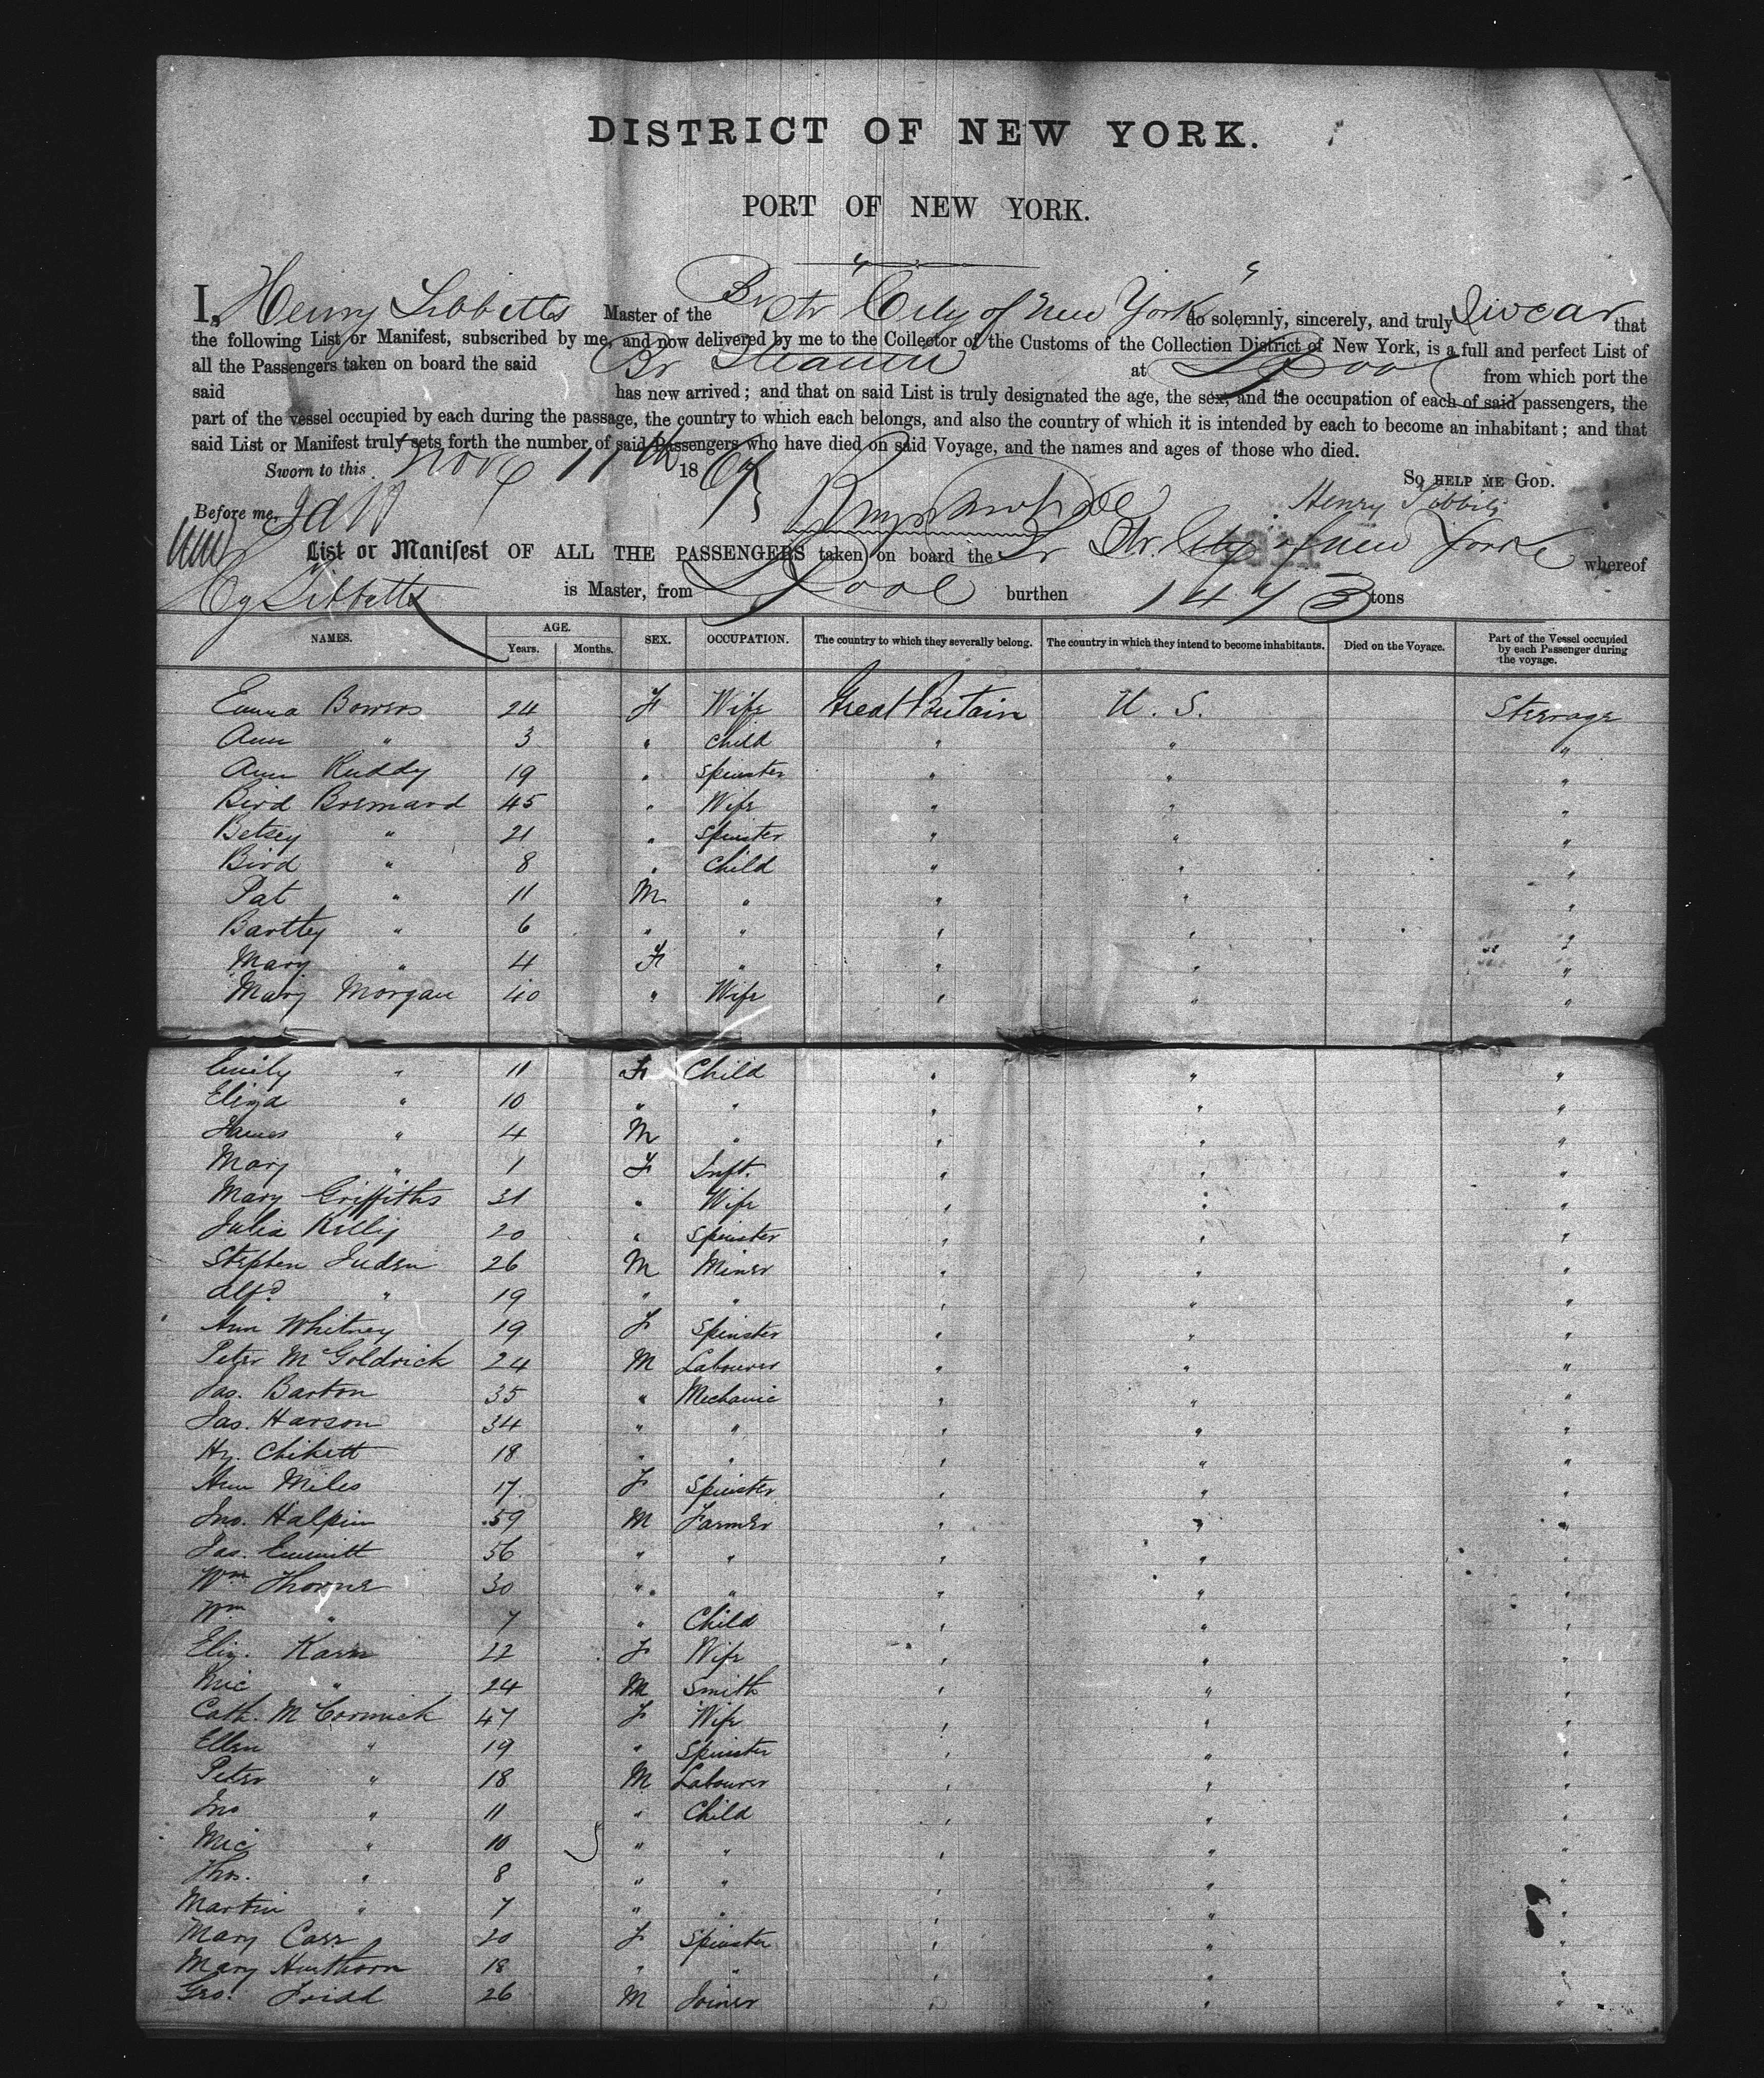 DISTRICT OF NEW YORK.
PORT OF NEW YORK.
I, Henry Tibbetts Master of the Br Str "City of New York" do solemnly, sincerely, and truly Swear that
the following List or Manifest, subscribed by me, and now delivered by me to the Collector of the Customs of the Collection District of New York, is a full and perfect List of
all the Passengers taken on board the said Br Steamer at LPool from which port the
said has now arrived; and that on said List is truly designated the age, the sex, and the occupation of each of said passengers, the
part of the vessel occupied by each during the passage, the country to which each belongs, and also the country of which it is intended by each to become an inhabitant; and that
said List or Manifest truly sets forth the number of said Passengers who have died on said Voyage, and the names and ages of those who died.
Sworn to this Nov 1867 So HELP ME GOD.
Before me, Henry Tibbits
List or Manifest OF ALL THE PASSENGERS taken on board the Str. City of New York whereof
Hy Tibbetts is Master, from LPool burthen 1443 tons
NAMES. AGE. Years. Months. SEX. OCCUPATION. The country to which they severally belong. The country in which they intend to become inhabitants. Died on the Voyage. Part of the Vessel occupied by each Passenger during the voyage.
Emma Bowers 24 F Wife Great Britain U. S. Steerage
Ann " 3 " Child " " "
Ann Ruddy 19 " Spinster " " "
Bird Bremard 45 " Wife " " "
Betsey " 21 " Spinster " " "
Bird " 8 " Child " " "
Pat " 11 M " " " "
Bartley " 6 " " " " "
Mary " 4 F " " " "
Mary Morgan 40 " Wife " " "
Emily " 11 F Child " " "
Eliza " 10 " " " " "
James " 4 M " " " "
Mary " 1 F Inft. " " "
Mary Griffiths 31 " Wife " " "
Julia Kelly 20 " Spinster " " "
Stephen Juden 26 M Miner " " "
Alfd " 19 " " " " "
Ann Whitney 19 F Spinster " " "
Peter McGoldrick 24 M Labourer " " "
Jas. Barton 35 " Mechanic " " "
Jas. Harson 34 " " " " "
Hy. Chikett 18 " " " " "
Ann Miles 17 F Spinster " " "
Jno. Halpin 59 M Farmer " " "
Jas. Emmitt 56 " " " " "
Wm Thorne 30 " " " " "
Wm " 7 " Child " " "
Eliz. Karn 22 F Wife " " "
Mic " 24 M Smith " " "
Cath. McCormick 47 F Wife " " "
Ellen " 19 " Spinster " " "
Peter " 18 M Labourer " " "
Jno " 11 " Child " " "
Mic " 10 " " " " "
Thos. " 8 " " " " "
Martin " 7 " " " " "
Mary Carr 20 F Spinster " " "
Mary Hawthorn 18 " " " " "
Geo. 26 M Joiner " " "